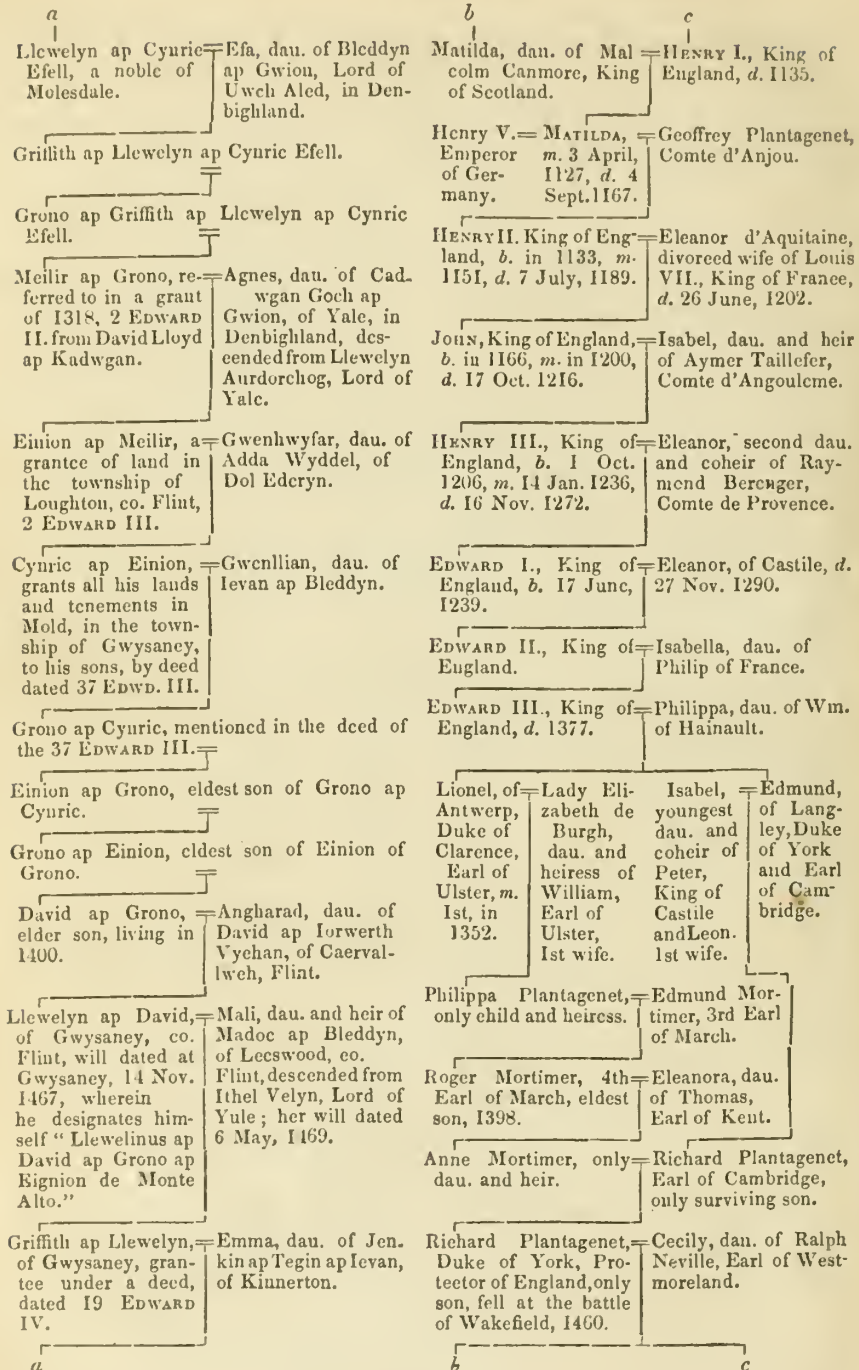 a
Llewelyn ap Cynric
Efell, a noble of
Molesdale.
Efa, dau. of Bleddyn
ap Gwion, Lord of
Uwch Aled, in Den-
bighland.
Griffith ap Llewelyn ap Cynric Efell.
Grono ap Griffith ap Llewelyn ap Cynric
Efell.
Meilir ap Grono, re-
ferred to in a grant
of 1318, 2 EDWARD
II. from David Lloyd
ap Kadwgan.
Agnes, dau. of Cad-
wgan Goch ap
Gwion, of Yale, in
Denbighland, des-
cended from Llewelyn
Aurdorchog, Lord of
Yale.
Einion ap Meilir, a
grantee of land in
the township of
Loughton, co. Flint,
2 EDWARD III.
Gwenhwyfar, dau. of
Adda Wyddel, of
Dol Ederyn.
Cynric ap Einion,
grants all his lands
and tenements in
Mold, in the town-
ship of Gwysaney,
to his sons, by deed
dated 37 EDWD. III.
Gwenllian, dau. of
Ievan ap Bleddyn.
Grono ap Cynric, mentioned in the deed of
the 37 EDWARD III.
Einion ap Grono, eldest son of Grono ap
Cynric.
Grono ap Einion, eldest son of Einion of
Grono.
David ap Grono,
elder son, living in
1400.
Angharad, dau. of
David ap Iorwerth
Vychan, of Caerval-
lwch, Flint.
Llewelyn ap David,
of Gwysaney, co.
Flint, will dated at
Gwysaney, 14 Nov.
1467, wherein
he designates him-
self "Llewelinus ap
David ap Grono ap
Eignion de Monte
Alto."
Mali, dau. and heir of
Madoc ap Bleddyn,
of Leeswood, co.
Flint, descended from
Ithel Velyn, Lord of
Yule; her will dated
6 May, 1469.
Griffith ap Llewelyn,
of Gwysaney, gran-
tee under a deed,
dated 19 EDWARD
IV.
Emma, dau. of Jen-
kin ap Tegin ap Ievan,
of Kinnerton.
a
b
c
Matilda, dau. of Mal
colm Canmore, King
of Scotland.
HENRY I., King of
England, d. 1135.
Henry V.
Emperor
of Ger-
many.
MATILDA,
m. 3 April,
1127, d. 4
Sept. 1167.
Geoffrey Plantagenet,
Comte d'Anjou.
HENRY II. King of Eng-
land, b. in 1133, m.
1151, d. 7 July, 1189.
Eleanor d'Aquitaine,
divorced wife of Louis
VII., King of France,
d. 26 June, 1202.
JOHN, King of England,
b. in 1166, m. in 1200,
d. 17 Oct. 1216.
Isabel, dau. and heir
of Aymer Taillefer,
Comte d'Angouleme.
HENRY III., King of
England, b. 1 Oct.
1206, m. 14 Jan. 1236,
d. 16 Nov. 1272.
Eleanor, second dau.
and coheir of Ray-
mend Berenger,
Comte de Provence.
EDWARD I., King of
England, b. 17 June,
1239.
Eleanor, of Castile, d.
27 Nov. 1290.
EDWARD II., King of
England.
Isabella, dau. of
Philip of France.
EDWARD III., King of
England, d. 1377.
Philippa, dau. of Wm.
of Hainault.
Lionel, of
Antwerp,
Duke of
Clarence,
Earl of
Ulster, m.
1st, in
1352.
Lady Eli-
zabeth de
Burgh,
dau. and
heiress of
William,
Earl of
Ulster,
1st wife.
Isabel,
youngest
dau. and
coheir of
Peter,
King of
Castile
and Leon.
1st wife.
Edmund,
of Lang-
ley, Duke
of York
and Earl
of Cam-
bridge.
Philippa Plantagenet,
only child and heiress.
Edmund Mor-
timer, 3rd Earl
of March.
Roger Mortimer, 4th
Earl of March, eldest
son, 1398.
Eleanora, dau.
of Thomas,
Earl of Kent.
Anne Mortimer, only
dau. and heir.
Richard Plantagenet,
Earl of Cambridge,
only surviving son.
Richard Plantagenet,
Duke of York, Pro-
tector of England, only
son, fell at the battle
of Wakefield, 1460.
Cecily, dau. of Ralph
Neville, Earl of West-
moreland.
b
c